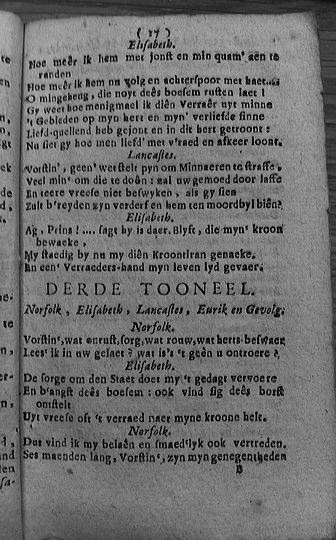 ( 17 )
Elisabeth.
Noe meêr ik hem met jonst en min quam' aen te
randen
Hoe meêr ik hem nu volg en achterspoor met
O mingeheug, die noyt deês boesem rusten laet !
Gy weet hoe menigmael ik diên Verraêr uyt minne
't Gebieden op myn hert en myn' verliefde sinne
Liefd-quellend heb gejont en in dit hert getroont :
Nu siet gy hoe men liefd' met v'raed en afkeer loont.
Lancastes.
Vorstin', geen' wet stelt pyn om Minnaeren te straffe.
Veel min' om die te doên : zal uw gemoed daer laffe
En teere vreese niet beswyken, als gy sien
Zult b'reyden zyn verderf en hem ten moordbyl biên?
Elisabeth.
Ag, Prins ! .... sagt hy is daer. Blyft, die myn' kroon
bewaeke,
My staedig by nu my diên Kroontiran genaeke.
En een' Verraeders-hand myn leven lyd gevaer.
DERDE TOONEEL.
Norfolk, Elisabeth, Lancastes, Eurik en Gevolg.
Norfolk.
Vorstin', wat onrust, sorg, wat rouw, wat herts-beswaer
Lees' ik in uw gelaet ? wat is't 't geên u ontroere ?
Elisabeth.
De sorge om den Staet doet my 't gedagt vervoere
En b'angst deês boesem : ook vind sig deês borst
ontstelt
Uyt vreese oft 't verraed naer myne kroone helt.
Norfolk.
Dus vind ik my belaên en smaed'lyk ook vertreden.
Ses maenden lang, Vorstin', zyn myn genegentheden
B